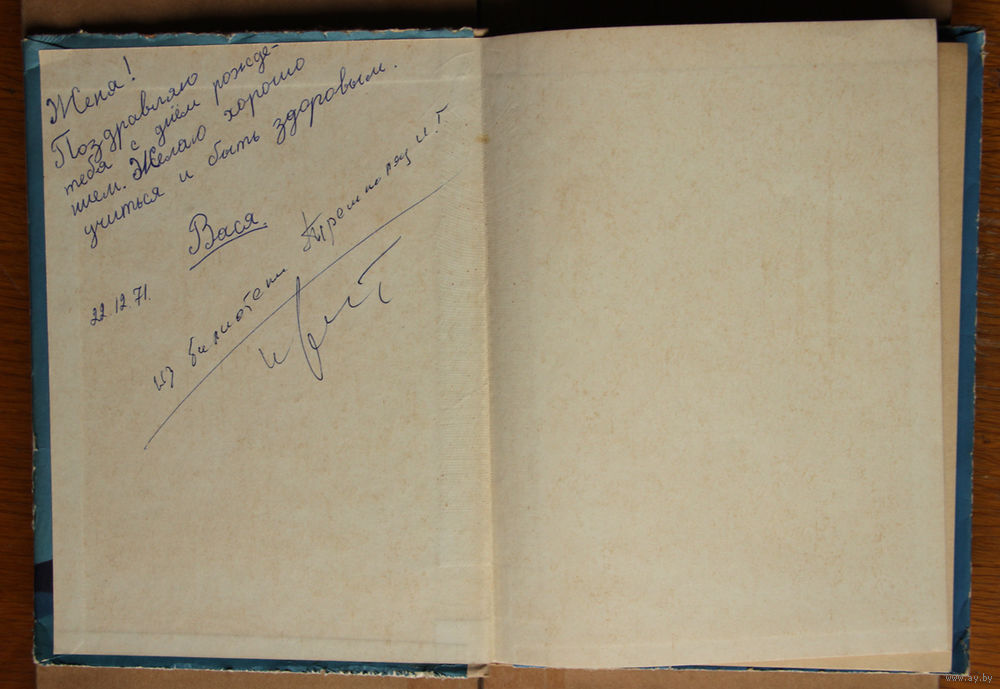 Женя!
Поздравляю
тебя с днём рожде-
нием. Желаю хорошо
учиться и быть здоровым.
Вася.
22.12.71.
из библиотеки И.Т
www.ay.by